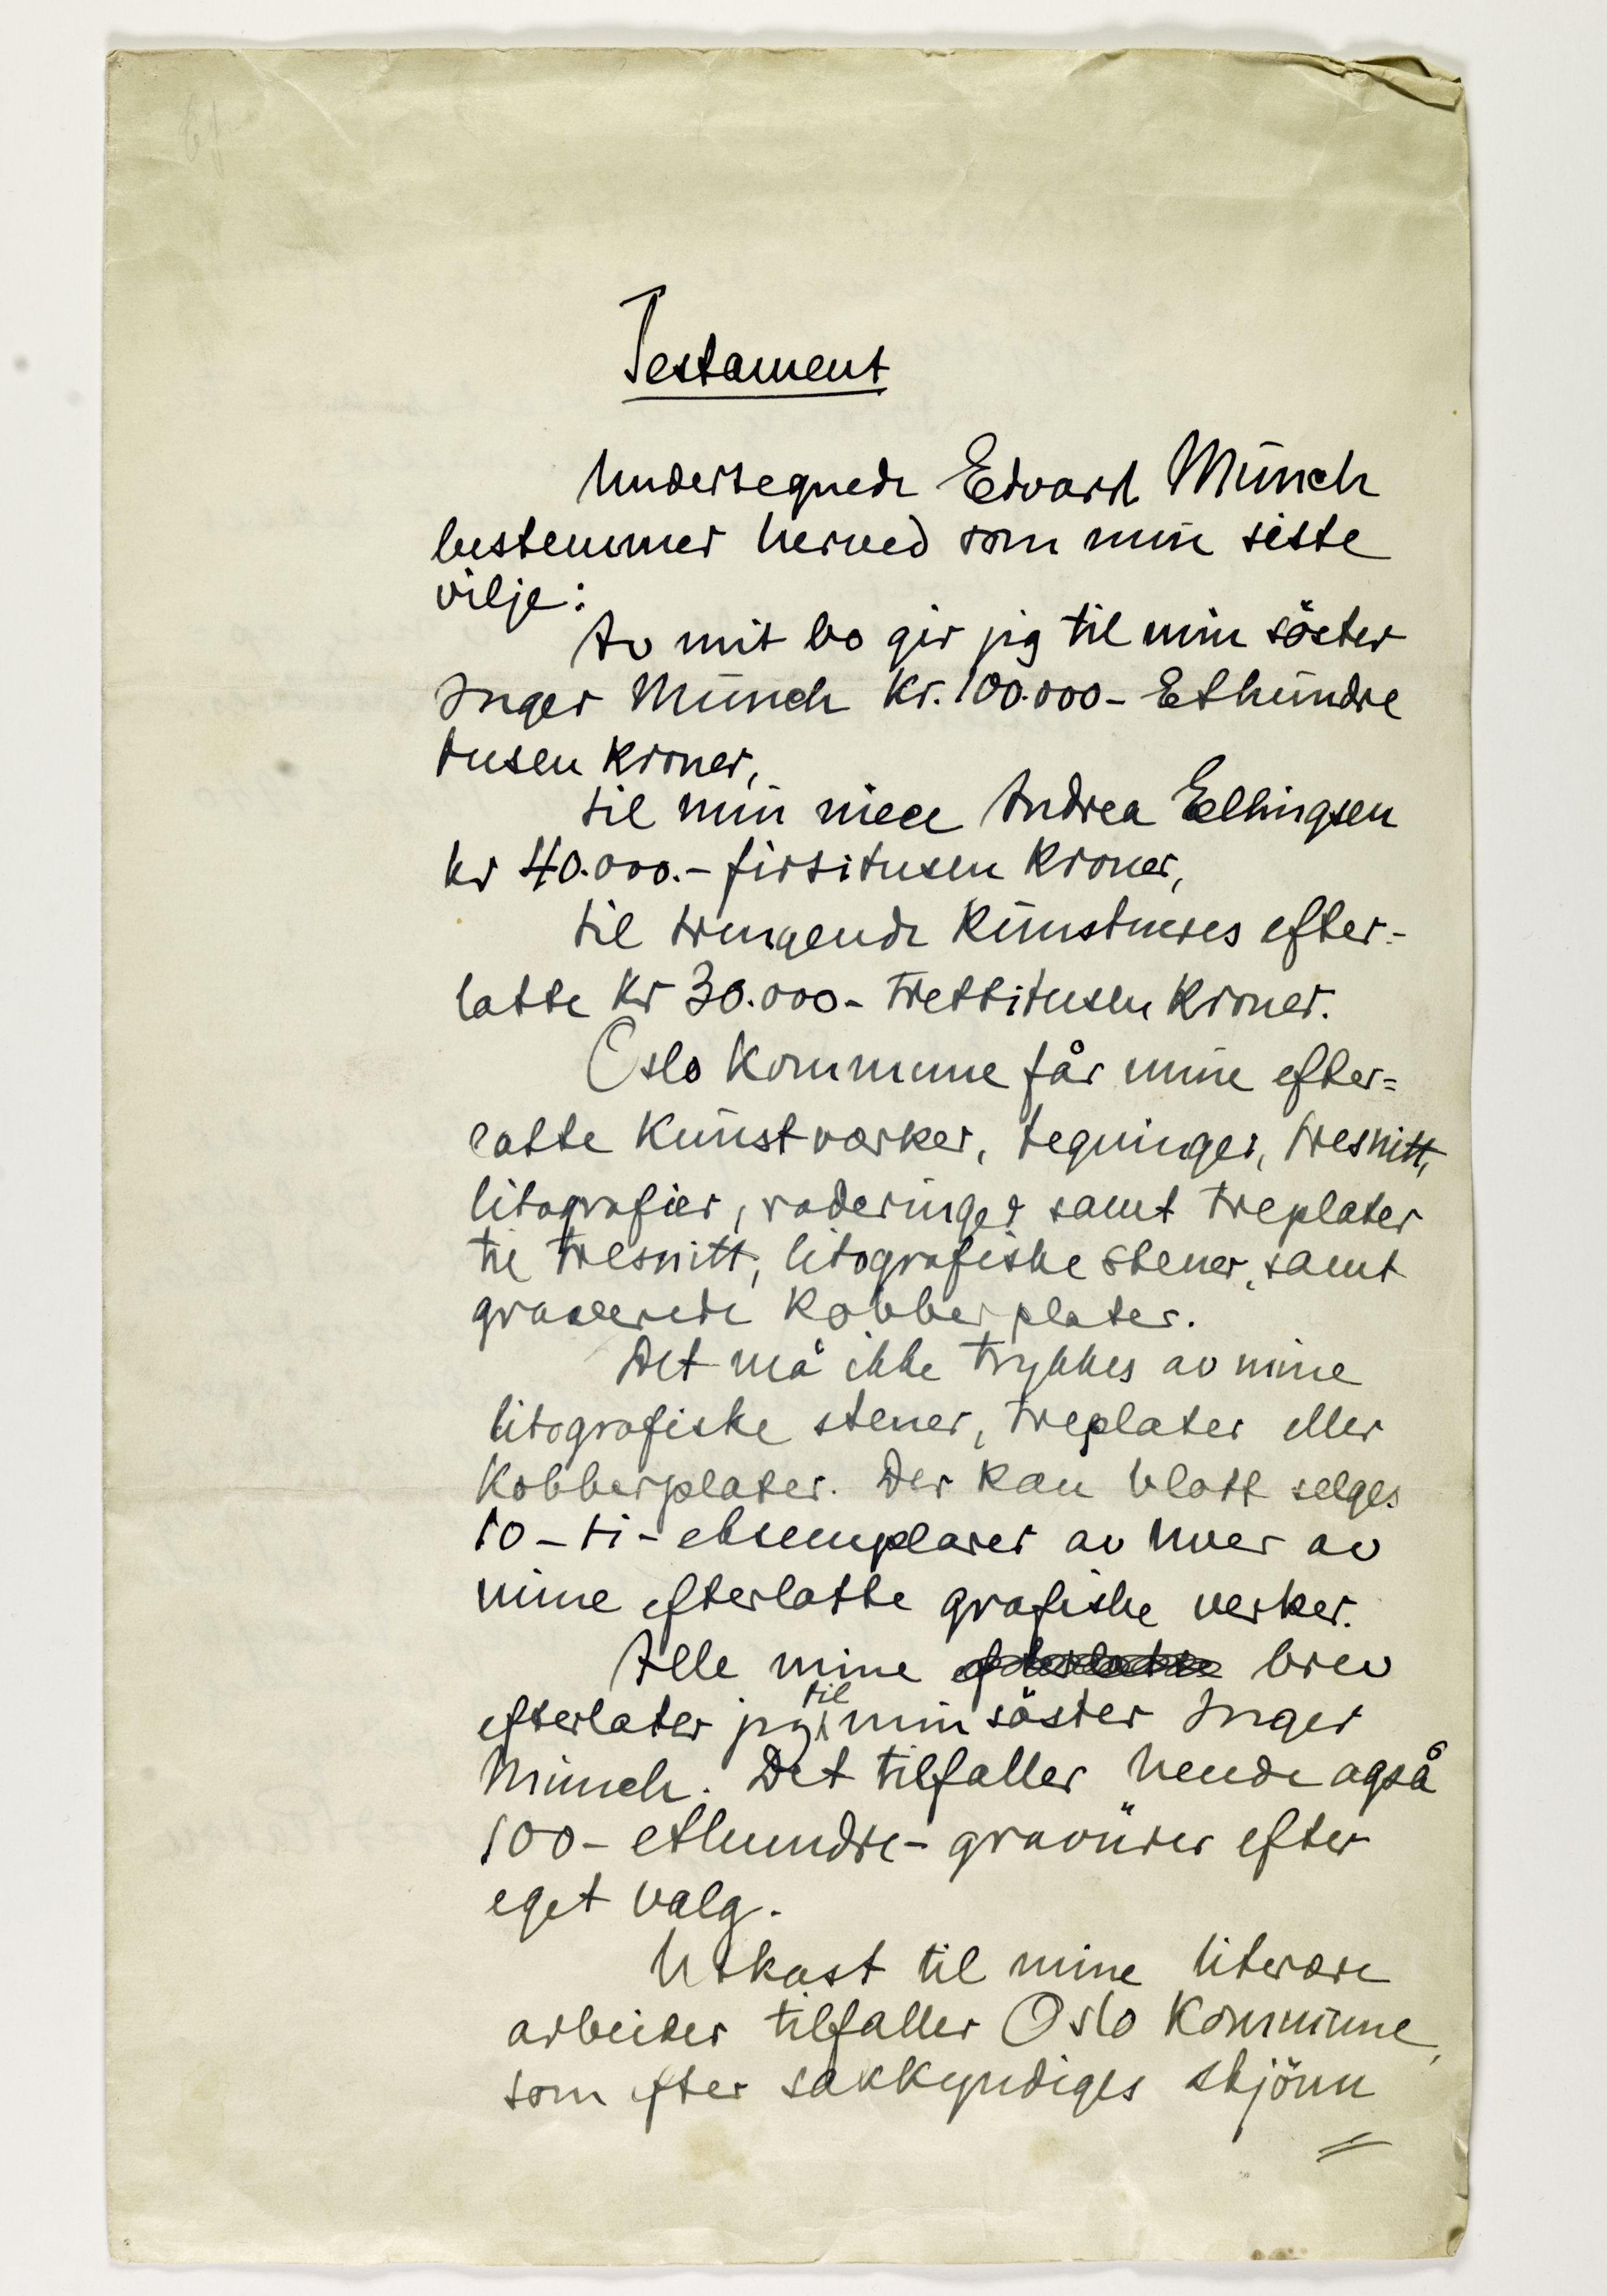 Testament
Undertegnede Edvard Münch
bestemmer herved som min siste
vilje:
Av mit bo gir jeg til min söster
Inger Münch Kr. 100.000 - Ethundre
tusen kroner,
til min niece Andrea Ellingsen
kr 40.000.- firtitusen kroner,
til trengende Kunstneres efter-
latte kr 30.000 - trettitusen kroner.
Oslo Kommune får mine efter=
latte Kunstværker, tegninger, tresnitt,
litografier, raderinger samt treplater
til tresnitt, litografiske stener, samt
graverede kobberplater.
Det må ikke trykkes av mine
litografiske stener, treplater eller
kobberplater. Der kan blott selges
10 - ti - eksemplarer av hver av
mine efterlatte grafiske verker.
Alle mine efterlatte brev
efterlater jeg til min söster Inger
Münch. Det tilfaller hende også
100 - ethundre - gravürer efter
eget valg.
Utkast til mine literære
arbeider tilfaller Oslo Kommune,
som efter sakkyndiges skjönn